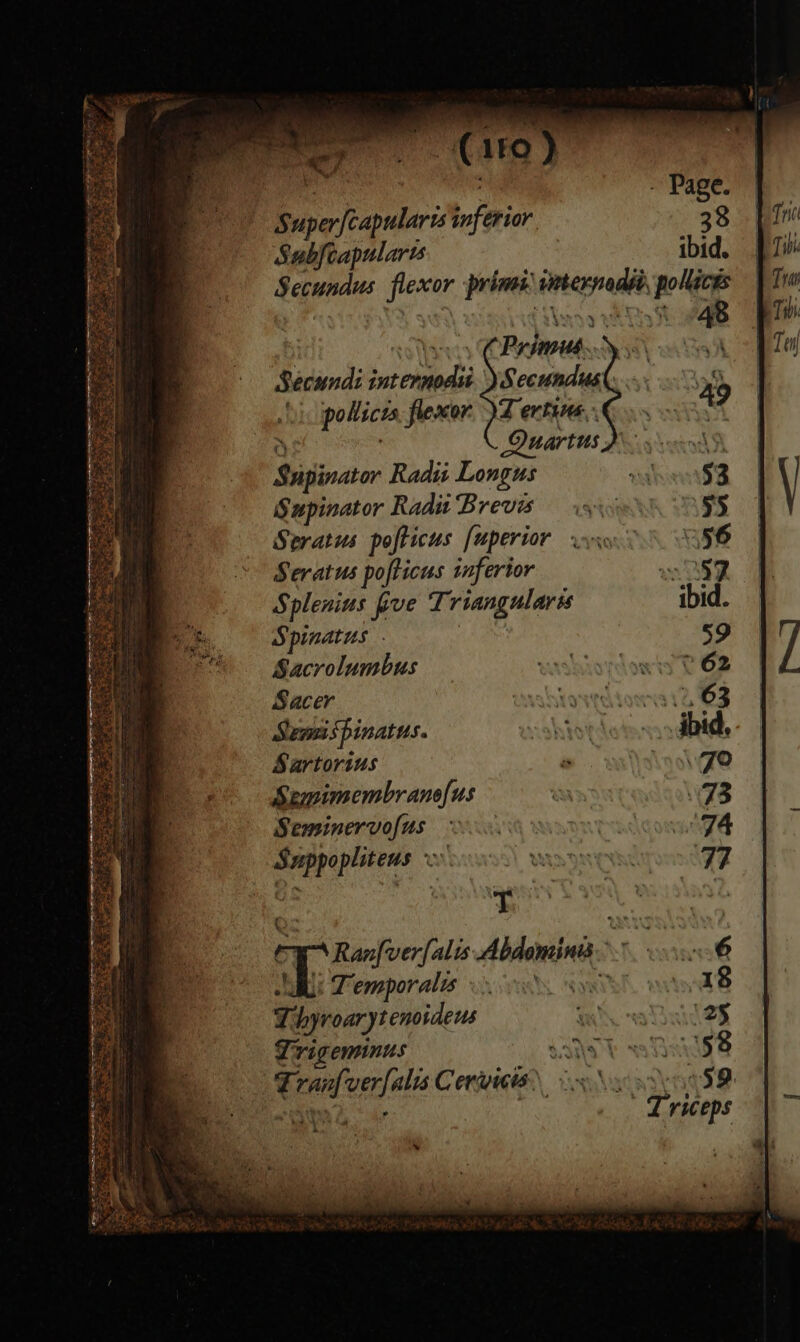 (110)
Page.
Superſcapularis inferior 38
Subſcapularis ibid.
Secundus flexor primi internodii pollicis
48
Primus
Secundi internodii Secundus 49
pollicis flexor Tertius
Quartus
Supinator Radii Longus 53
Supinator Radii Brevis 55
Seratus poſticus ſuperior 56
Seratus poſticus inferior 57
Splenius ſive Triangularis ibid.
Spinatus 59
Sacrolumbus 62
Sacer 63
Semiſpinatus. ibid.
Sartorius 70
Semimembranoſus 73
Seminervoſus 74
Suppopliteus 77
T
TRanſverſalis Abdominis 6
Temporalis 18
Thyroarytenoideus 25
Trigeminus 58
Tranſverſalis Cervicis 59
Triceps